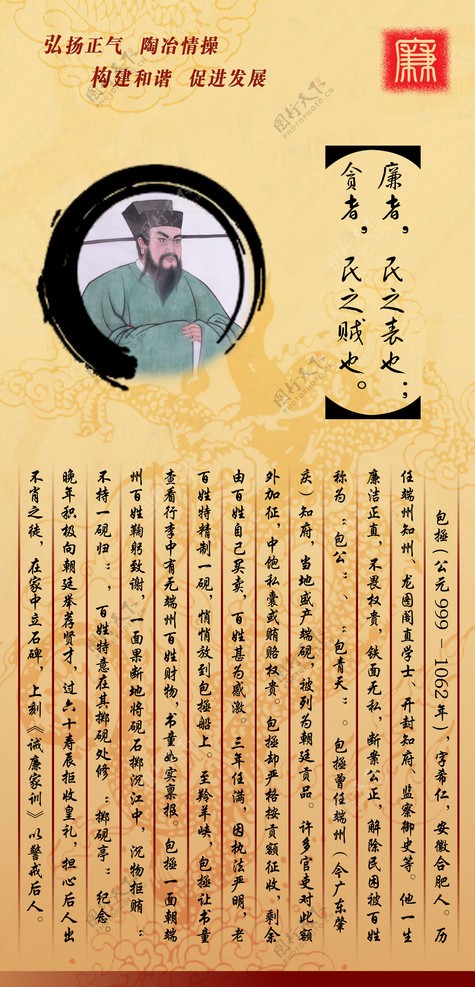 弘扬正气 陶冶情操
构建和谐 促进发展
廉
廉者，民之表也；
贪者，民之贼也。
包拯（公元999-1062年），字希仁，安徽合肥人。历
任端州知州、龙图阁直学士、开封知府、监察御史等。他一生
廉洁正直，不畏权贵，铁面无私，断案公正，解除民困被百姓
称为“包公”、“包青天”。包拯曾任端州（今广东肇
庆）知府，当地盛产端砚，被列为朝廷贡品。许多官吏对此额
外加征，中饱私囊或贿赂权贵。包拯却严格按贡额征收，剩余
由百姓自己买卖，百姓甚为感激。三年任满，因执法严明，老
百姓特精制一砚，悄悄放到包拯船上。至羚羊峡，包拯让书童
查看行李中有无端州百姓财物，书童如实禀报。包拯一面朝端
州百姓鞠躬致谢，一面果断地将砚石掷沉江中，沉物拒贿“
不持一砚归”，百姓特意在其掷砚处修“掷砚亭”纪念。
晚年积极向朝廷举荐贤才，过六十寿辰拒收皇礼，担心后人出
不肖之徒，在家中立石碑，上刻《诫廉家训》以警戒后人。